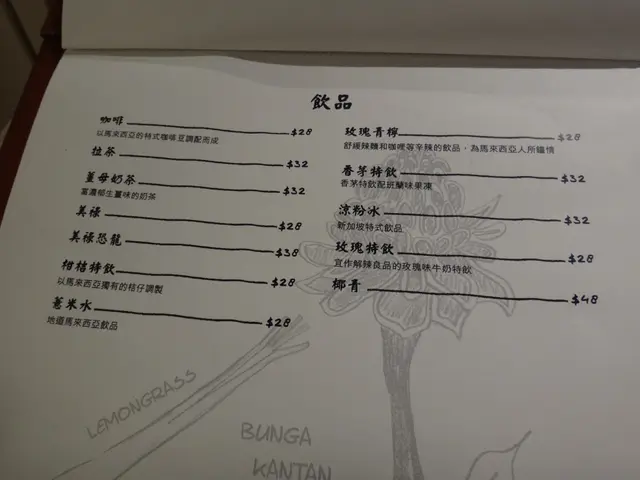 飲品
咖啡 $28
以馬來西亞的特式咖啡豆調配而成
拉茶 $32
薑母奶茶 $32
富濃郁生薑味的奶茶
美祿 $28
美祿恐龍 $38
柑桔特飲 $28
以馬來西亞獨有的桔仔調製
薏米水 $28
地道馬來西亞飲品
玫瑰青檸 $28
舒緩辣麵和咖喱等辛辣的飲品，為馬來西亞人所鍾情
香茅特飲 $32
香茅特飲配斑蘭味果凍
涼粉冰 $32
新加坡特式飲品
玫瑰特飲 $28
宜作解辣良品的玫瑰味牛奶特飲
椰青 $48
LEMONGRASS
BUNGA
KANTAN